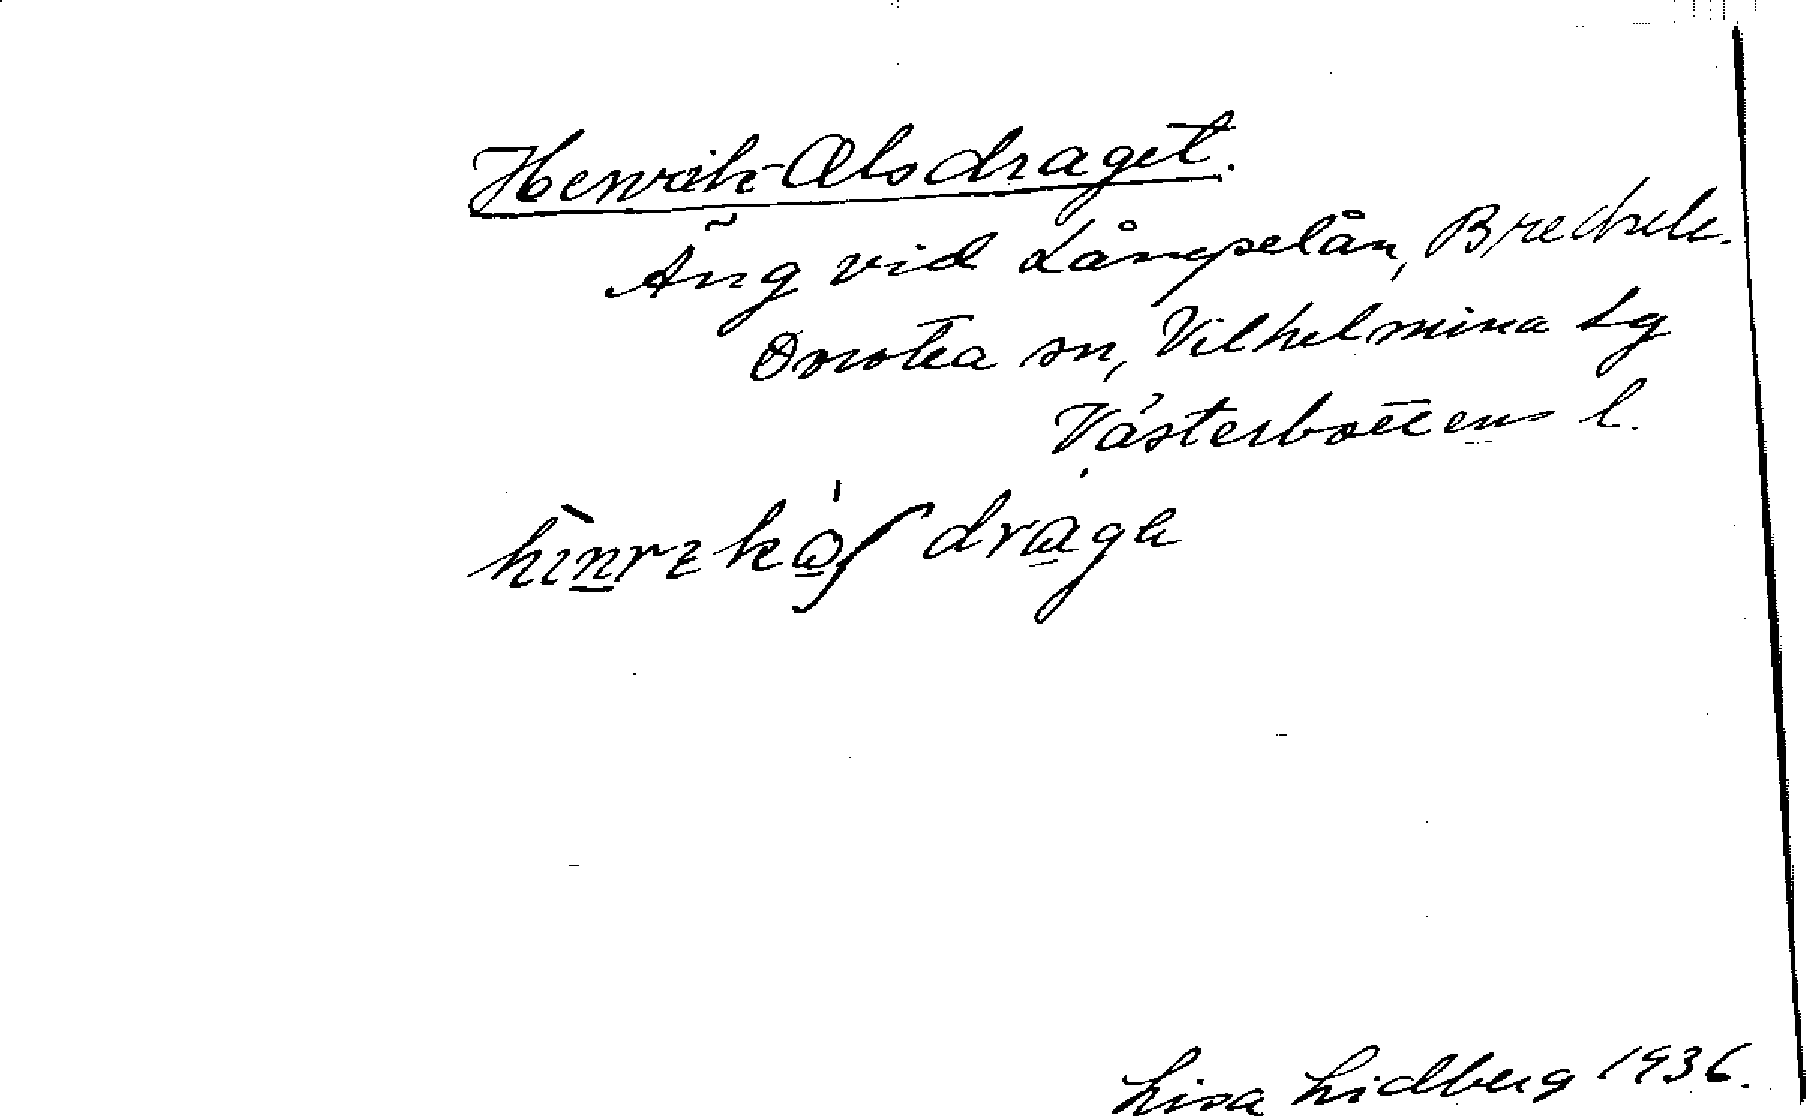 Henrik-Olsdraget.
Äng vid Långselån, Bredsele.
Dorotea sn, Vilhelmina tg
Västerbottens l.
draga
Lisa Lidberg 1936.